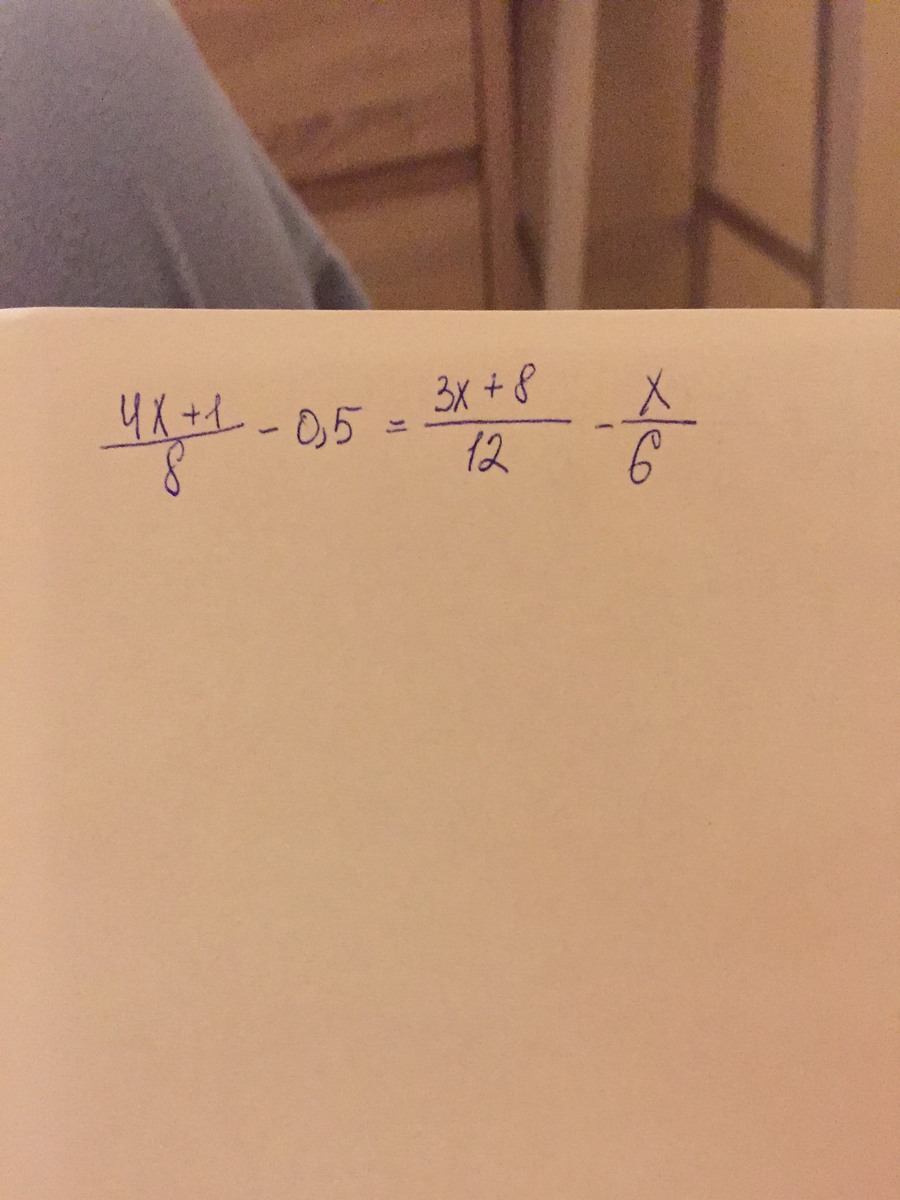 (4x+1)/8 - 0,5 = (3x+8)/12 - x/6